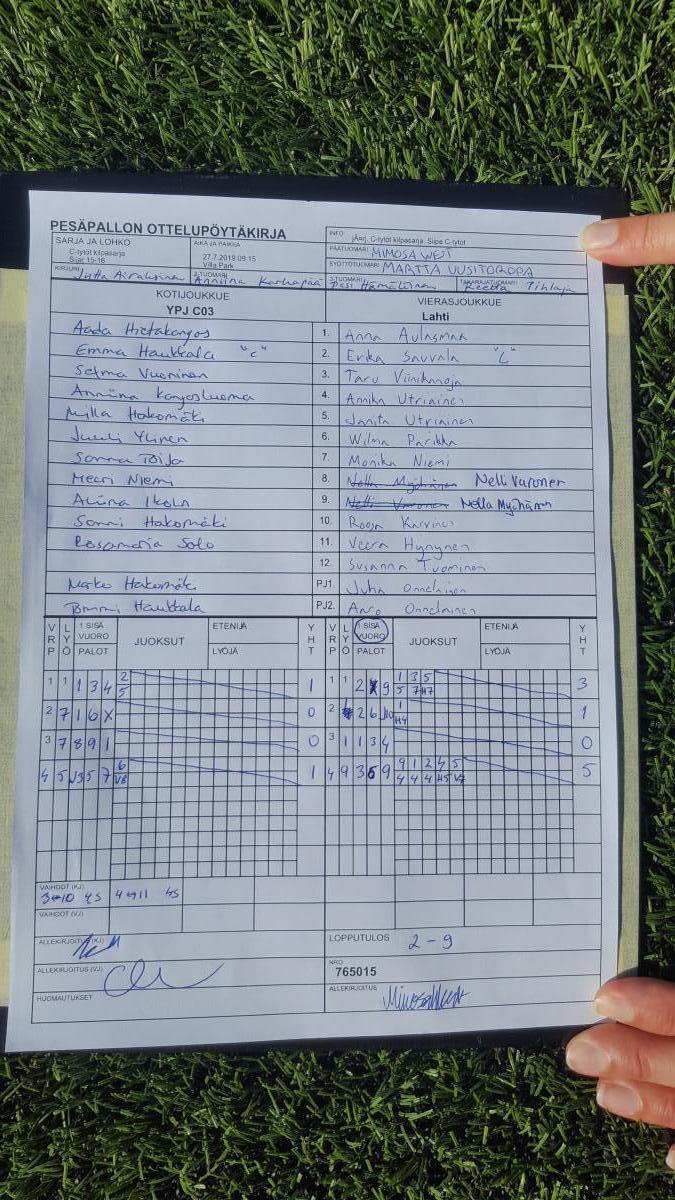 PESÄPALLON OTTELUPÖYTÄKIRJA
INFO jÄrj. C-tytöt kilpasarja: Siipe C-tytöt
SARJA JA LOHKO C-tytöt kilpasarja Sijat 15-16
AIKA JA PAIKKA 27.7.2019 09:15 Villa Park
PÄÄTUOMARI MIMOSA WEST
SYÖTTÖTUOMARI MARTTA UUSITORPPA
KIRJURI Jutta Airaksinen 2-TUOMARI Anniina Korkapää 3-TUOMARI Pasi Hämäläinen TAKARAJATUOMARI Reetta Tihlaja
KOTIJOUKKUE VIERASJOUKKUE
YPJ C03 Lahti
Aada Hietakangas 1. Anna Aulasmaa
Emma Haukkala "C" 2. Erika Sauvala "C"
Selma Vuorinen 3. Taru Viinikanoja
Anniina Kangasluoma 4. Annika Utriainen
Milla Hakomäki 5. Janita Utriainen
Juuli Ylinen 6. Wilma Parikka
Sanna Töijä 7. Monika Niemi
Meeri Niemi 8. Nella Myöhänen Nelli Varonen
Aliina Ikola 9. Nelli Varonen Nella Myöhänen
Sonni Hakomäki 10. Roosa Karvinen
Rosamaria Salo 11. Veera Hynynen
12. Susanna Tuominen
Marko Hakomäki PJ1. Juha Onnelainen
Tommi Haukkala PJ2. Aaro Onnelainen
VRP LYÖ 1 SISÄ VUORO PALOT JUOKSUT ETENIJÄ LYÖJÄ YHT VRP LYÖ 1 SISÄ VUORO PALOT JUOKSUT ETENIJÄ LYÖJÄ YHT
1 1 1 3 4 2 1 1 1 2 9 1 3 5 3
5 5 7 H7
2 7 1 6 X 0 2 2 6 J10 1 1
H4
3 7 8 9 1 0 3 1 1 3 4 0
4 5 J3 5 7 6 1 4 9 3 6 9 9 1 2 4 5 5
V8 4 4 4 H5 V7
VAIHDOT (KJ)
3-10 4S 4-11 4S
VAIHDOT (VJ)
ALLEKIRJOITUS (KJ)
LOPPUTULOS 2 - 9
ALLEKIRJOITUS (VJ)
NRO
765015
HUOMAUTUKSET
ALLEKIRJOITUS Mimosa West